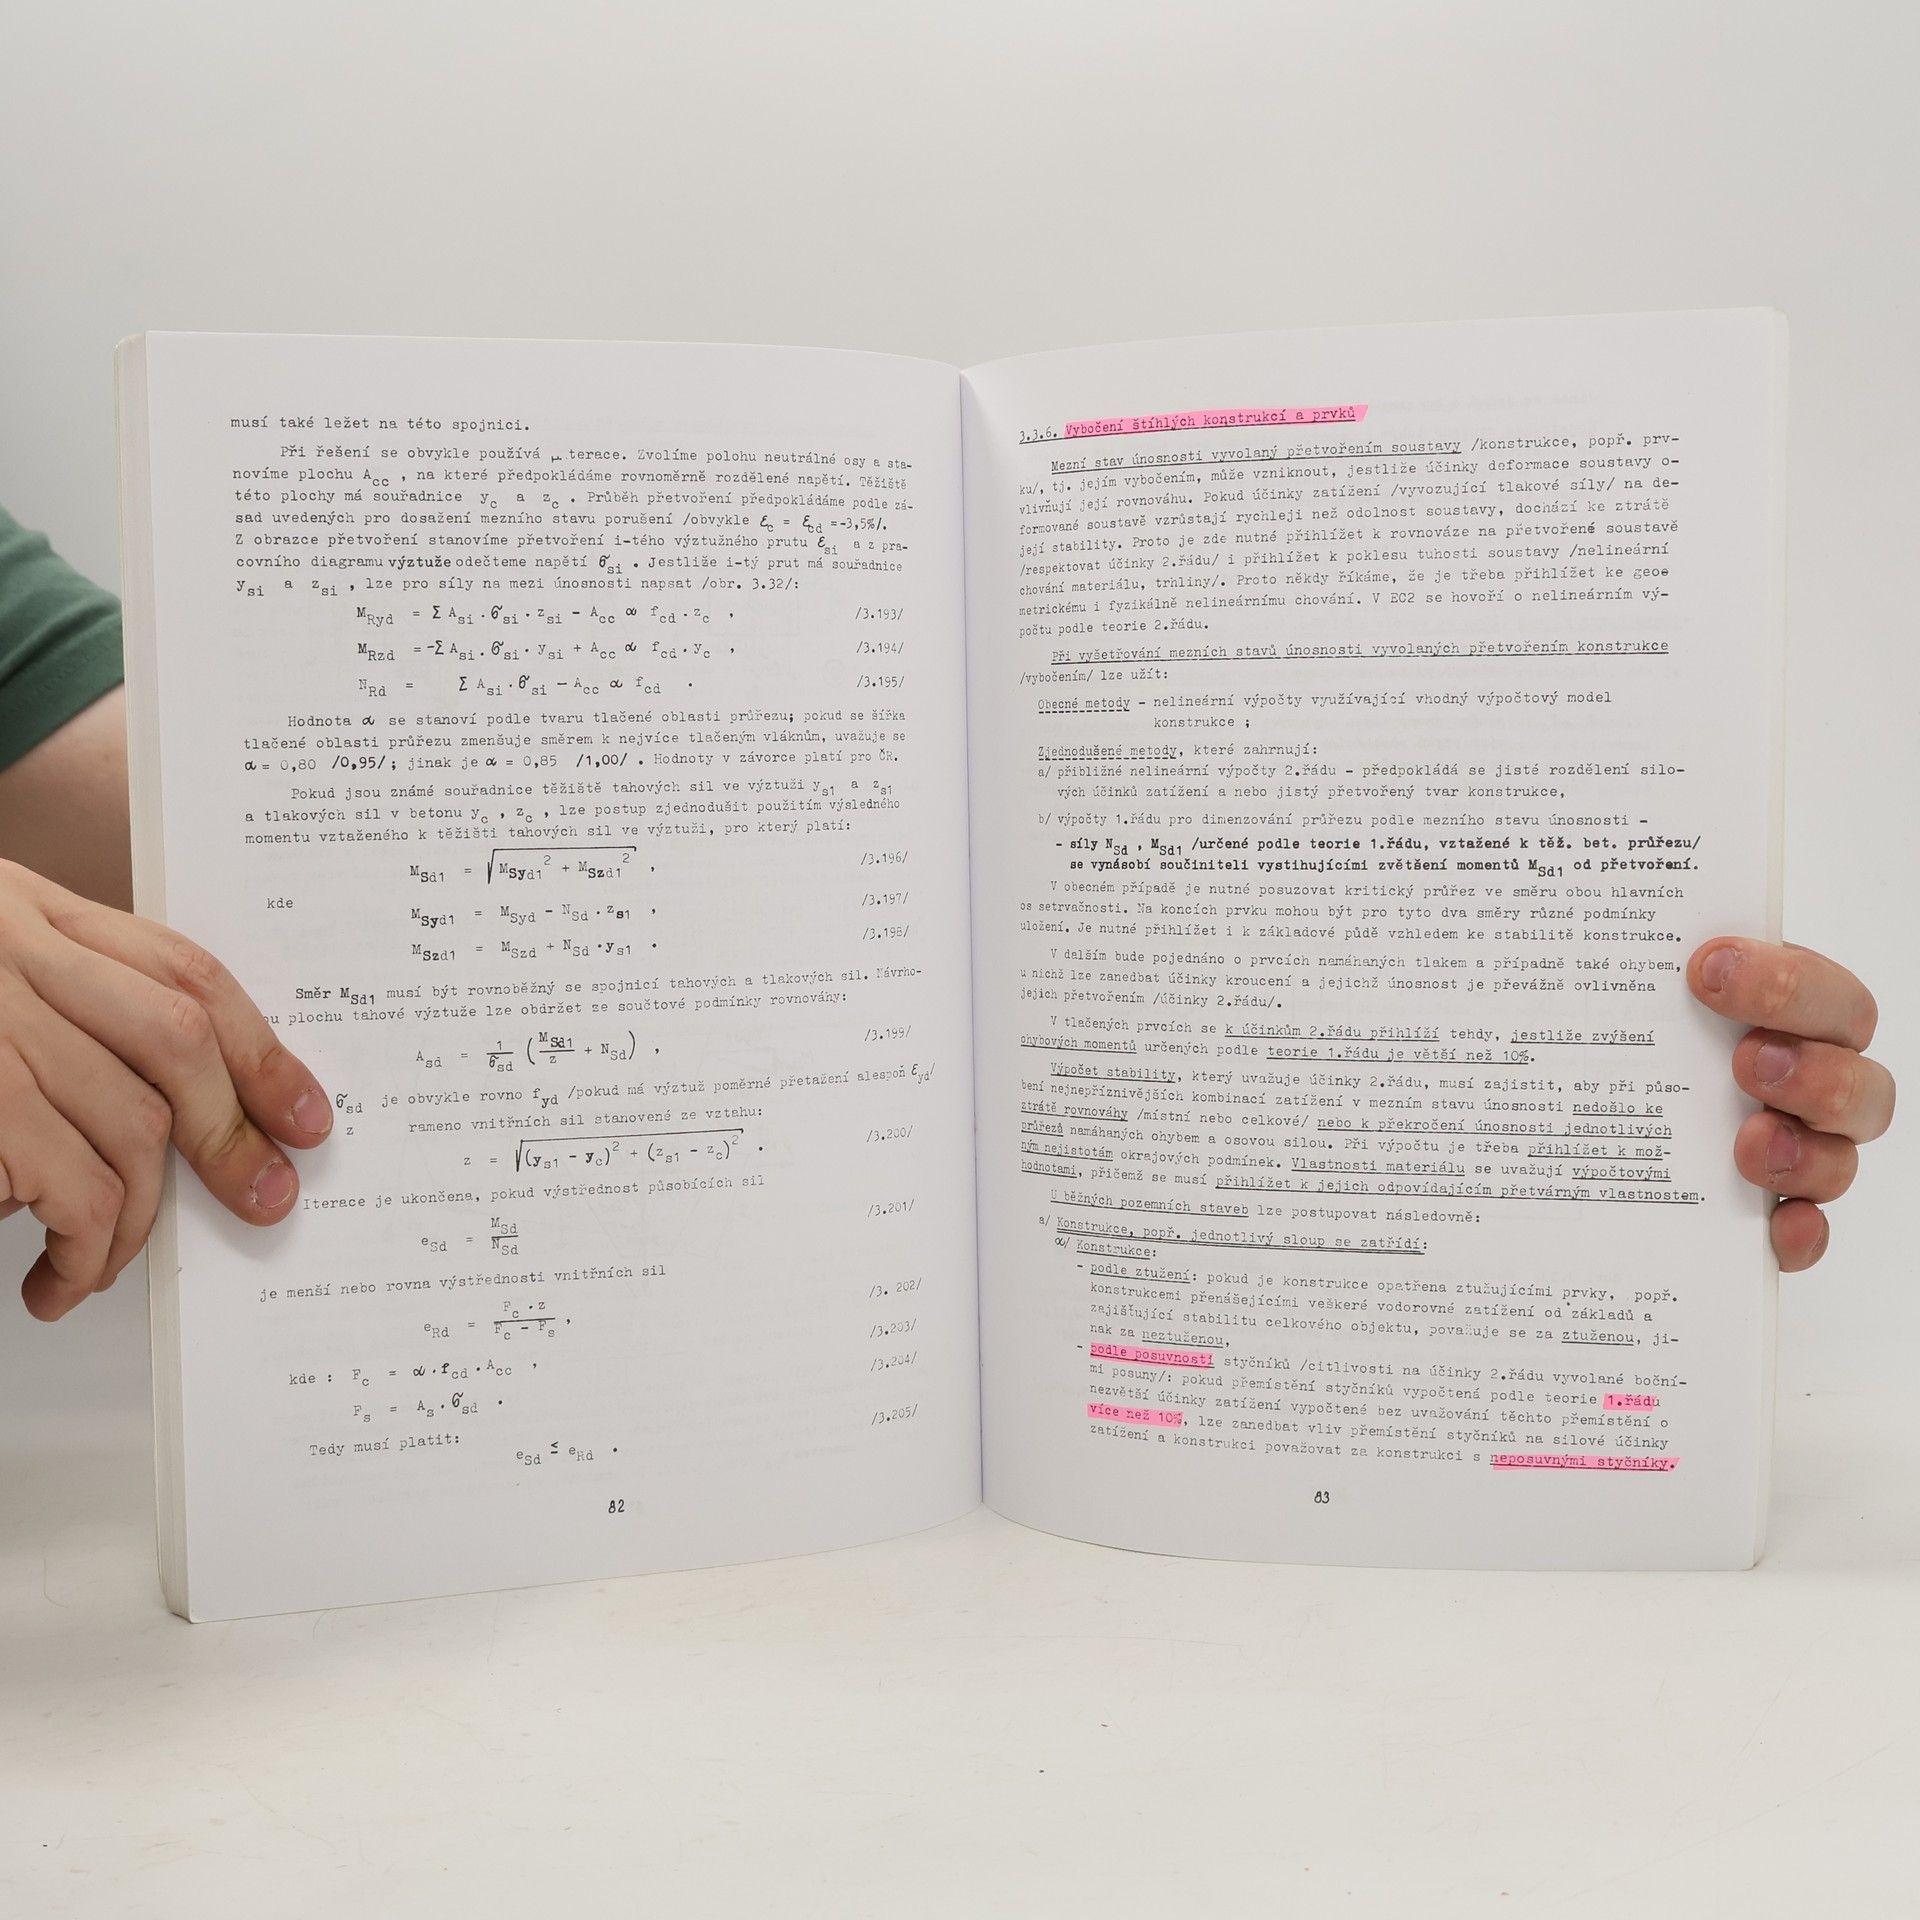 musí také ležet na této spojnici.
Při řešení se obvykle používá terace. Zvolíme polohu neutrálné osy a sta-
novíme plochu Acc , na které předpokládáme rovnoměrně rozdělené napětí. Těžiště
této plochy má souřadnice yc a zc . Průběh přetvoření předpokládáme podle zá-
sad uvedených pro dosažení mezního stavu porušení /obvykle Ɛc = Ɛcd =-3,5%/.
Z obrazce přetvoření stanovíme přetvoření i-tého výztužného prutu Ɛsi a z pra-
covního diagramu výztuže odečteme napětí σsi . Jestliže i-tý prut má souřadnice
ysi a zsi , lze pro síly na mezi únosnosti napsat /obr. 3.32/:
MRyd = Σ Asi . σsi . zsi - Acc α fcd . zc , /3.193/
MRzd =-Σ Asi . σsi . ysi + Acc α fcd . yc , /3.194/
NRd = Σ Asi . σsi - Acc α fcd . /3.195/
Hodnota α se stanoví podle tvaru tlačené oblasti průřezu; pokud se šířka
tlačené oblasti průřezu zmenšuje směrem k nejvíce tlačeným vláknům, uvažuje se
α = 0,80 /0,95/; jinak je α = 0,85 /1,00/ . Hodnoty v závorce platí pro ČR.
Pokud jsou známé souřadnice těžiště tahových sil ve výztuži ys1 a zs1
a tlakových sil v betonu yc , zc , lze postup zjednodušit použitím výsledného
momentu vztaženého k těžišti tahových sil ve výztuži, pro který platí:
MSd1 = √(MSyd1² + MSzd1²) , /3.196/
kde
MSyd1 = MSyd - NSd . zs1 , /3.197/
MSzd1 = MSzd + NSd . ys1 . /3.198/
Směr MSd1 musí být rovnoběžný se spojnicí tahových a tlakových sil. Návrho-
ou plochu tahové výztuže lze obdržet ze součtové podmínky rovnováhy:
Asd = 1/σsd (MSd1/z + NSd) , /3.199/
σsd je obvykle rovno fyd /pokud má výztuž poměrné přetažení alespoň Ɛyd/
z rameno vnitřních sil stanovené ze vztahu:
z = √((ys1 - yc)² + (zs1 - zc)²) . /3.200/
Iterace je ukončena, pokud výstřednost působících sil
eSd = MSd/NSd /3.201/
je menší nebo rovna výstřednosti vnitřních sil
eRd = Fc . z/Fc - Fs , /3. 202/
/3.203/
kde : Fc = α . fcd . Acc , /3.204/
Fs = As . σsd .
/3.205/
Tedy musí platit:
eSd ≤ eRd .
82
3.3.6. Vybočení štíhlých konstrukcí a prvků
Mezní stav únosnosti vyvolaný přetvořením soustavy /konstrukce, popř. prv-
ku/, tj. jejím vybočením, může vzniknout, jestliže účinky deformace soustavy o-
vlivňují její rovnováhu. Pokud účinky zatížení /vyvozující tlakové síly/ na de-
formované soustavě vzrůstají rychleji než odolnost soustavy, dochází ke ztrátě
její stability. Proto je zde nutné přihlížet k rovnováze na přetvořené soustavě
/respektovat účinky 2.řádu/ i přihlížet k poklesu tuhosti soustavy /nelineární
chování materiálu, trhliny/. Proto někdy říkáme, že je třeba přihlížet ke geoe
metrickému i fyzikálně nelineárnímu chování. V EC2 se hovoří o nelineárním vý-
počtu podle teorie 2.řádu.
Při vyšetřování mezních stavů únosnosti vyvolaných přetvořením konstrukce
/vybočením/ lze užít:
Obecné metody - nelineární výpočty využívající vhodný výpočtový model
konstrukce ;
Zjednodušené metody, které zahrnují:
a/ přibližné nelineární výpočty 2.řádu - předpokládá se jisté rozdělení silo-
vých účinků zatížení a nebo jistý přetvořený tvar konstrukce,
b/ výpočty 1.řádu pro dimenzování průřezu podle mezního stavu únosnosti -
- síly NSd , MSd1 /určené podle teorie 1.řádu, vztažené k těž. bet. průřezu/
se vynásobí součiniteli vystihujícími zvětšení momentů MSd1 od přetvoření.
V obecném případě je nutné posuzovat kritický průřez ve směru obou hlavních
os setrvačnosti. Na koncích prvku mohou být pro tyto dva směry různé podmínky
uložení. Je nutné přihlížet i k základové půdě vzhledem ke stabilitě konstrukce.
V dalším bude pojednáno o prvcích namáhaných tlakem a případně také ohybem,
u nichž lze zanedbat účinky kroucení a jejichž únosnost je převážně ovlivněna
jejich přetvořením /účinky 2.řádu/.
V tlačených prvcích se k účinkům 2.řádu přihlíží tehdy, jestliže zvýšení
ohybových momentů určených podle teorie 1.řádu je větší než 10%.
Výpočet stability, který uvažuje účinky 2.řádu, musí zajistit, aby při půso-
bení nejnepříznivějších kombinací zatížení v mezním stavu únosnosti nedošlo ke
ztrátě rovnováhy /místní nebo celkové/ nebo k překročení únosnosti jednotlivých
průřezů namáhaných ohybem a osovou silou. Při výpočtu je třeba přihlížet k mož-
ným nejistotám okrajových podmínek. Vlastnosti materiálu se uvažují výpočtovými
hodnotami, přičemž se musí přihlížet k jejich odpovídajícím přetvárným vlastnostem.
U běžných pozemních staveb lze postupovat následovně:
a/ Konstrukce, popř. jednotlivý sloup se zatřídí:
α/ Konstrukce:
- podle ztužení: pokud je konstrukce opatřena ztužujícími prvky, popř.
konstrukcemi přenášejícími veškeré vodorovné zatížení od základů a
zajišťující stabilitu celkového objektu, považuje se za ztuženou, ji-
nak za neztuženou,
- podle posuvnosti styčníků /citlivosti na účinky 2.řádu vyvolané boční-
mi posuny/: pokud přemístění styčníků vypočtená podle teorie 1.řádu
nezvětší účinky zatížení vypočtené bez uvažování těchto přemístění o
více než 10%, lze zanedbat vliv přemístění styčníků na silové účinky
zatížení a konstrukci považovat za konstrukci s neposuvnými styčníky.
83